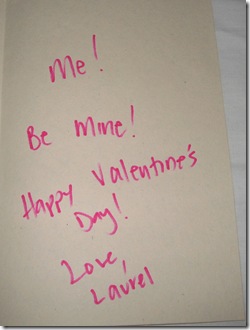 Me!
Be Mine!
Happy Valentine's
Day!
Love,
Laurel